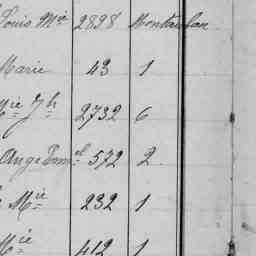 Louis Mie 2838 Montauban
Marie 43 1
Mie Jh 2732 6
Ange Emmel 572 2
Mie 232 1
Mie 412 1